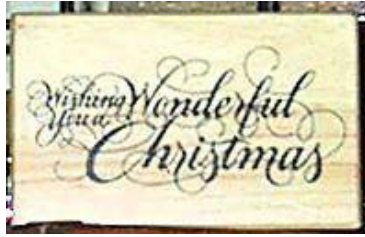 Wishing
You a
Wonderful
Christmas